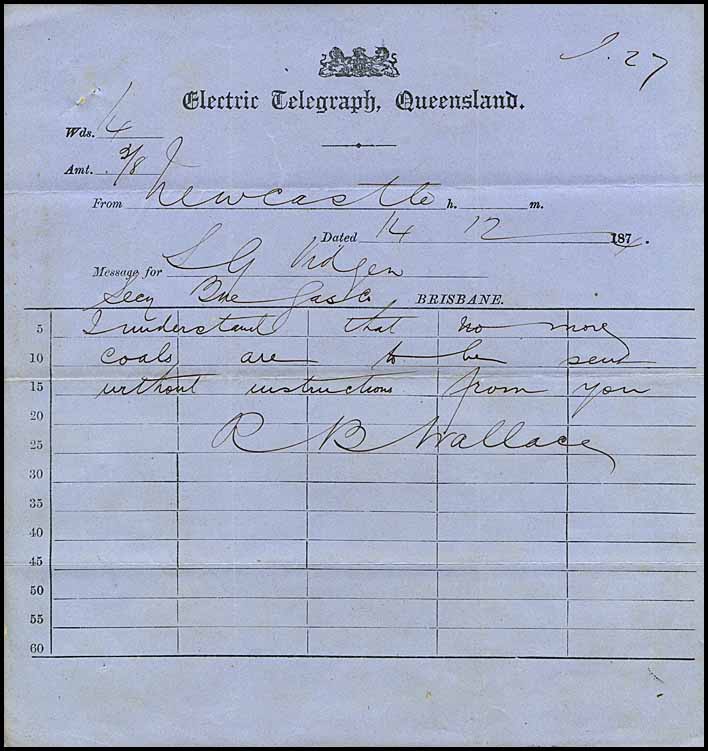 Electric Telegraph, Queensland.
Wds. 14
Amt. 2/8
From Newcastle h. m.
Dated 14 12 1874.
Message for S G Vidgen
Secy Bne Gas Co, BRISBANE.
5 I understand that no more
10 coals are to be send
15 without instructions from you
20 R B Wallace
25
30
35
40
45
50
55
60